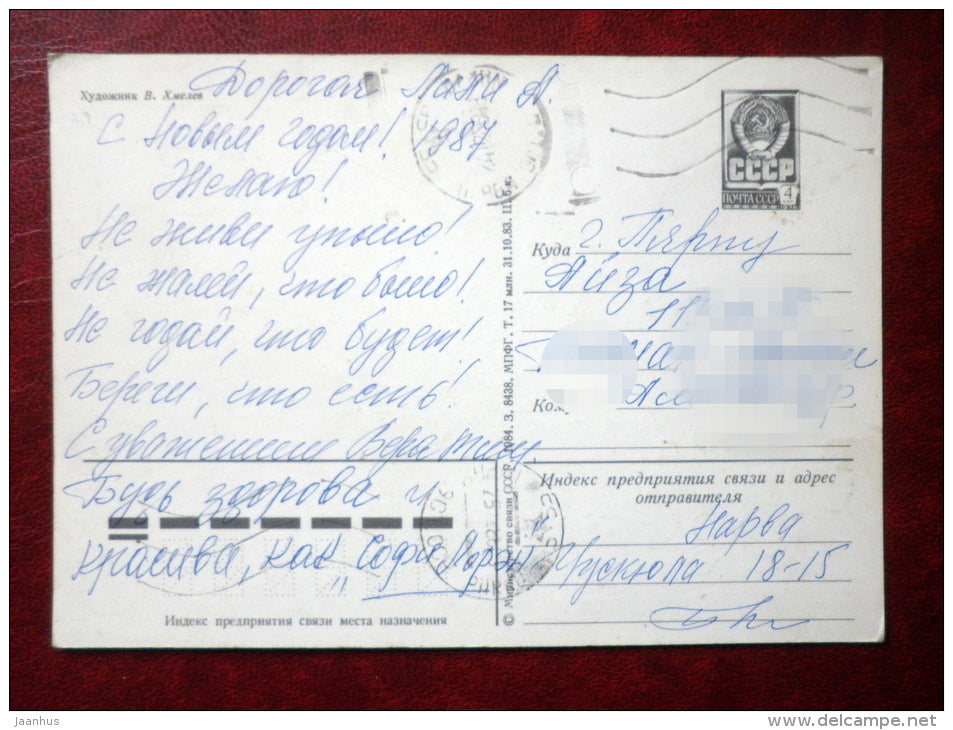 Художник В. Хмелев
Дорогая Лили А.
С Новым годом! 1987
Желаю!
Не живи уныло!
Не жалей, что было!
Не годай, что будет!
Береги, что есть!
С уважением Вера
Будь здорова и
красива, как "Софи Лорэн"
Индекс предприятия связи места назначения
© Министерство связи СССР. 1984. З. 8438. МПФГ. Т. 17 млн. 31.10.83. Ц. 5 к.
СССР
ПОЧТА СССР
4
1976
Куда г. Пярну
Айза
11
Кому
Индекс предприятия связи и адрес
отправителя
Нарва
18-15
jaanhus
www.delcampe.net